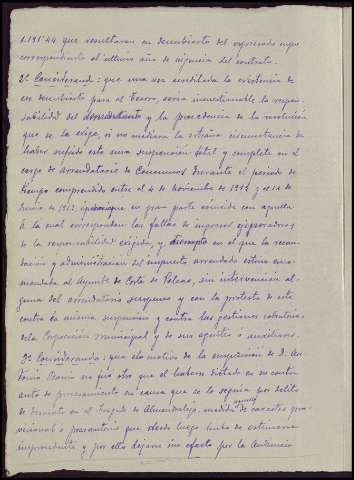 1.191'44 que resultaron en descubierto del expresado cupo
correspondiente al último año de vigencia del contrato.
2º Considerando: que una vez acreditada la existencia de
ese descubierto para el Tesoro, sería incuestionable la respon-
sabilidad del arrendatario y la procedencia de la resolución
que se le exige, si no mediara la extraña circunstancia de
haber sufrido este una suspensión total y completa en el
cargo de arrendatario de Consumos durante el periodo de
tiempo comprendido entre el 4 de Noviembre de 1912 y el 14 de
Junio de 1913, época que en gran parte coincide con aquella
á la cual corresponden las faltas de ingresos
de la responsabilidad exigida, y durante en el que la recau-
dación y administración del impuesto arrendado estuvo enco-
mendada al Aymto de Corte de Peleas, sin intervención al-
guna del arrendatario suspenso y con la protesta de este
contra la misma suspensión y contra las gestiones
de la Corporación municipal y de sus agentes ó auxiliares.
3º Considerando: que el motivo de la suspensión de D. An-
tonio no fué otro que el haberse dictado en su contra
auto de procesamiento en causa que se le seguía por delito
de en el Juzgado de Almendralejo, medida de caracter pro-
visional ó precautorio que desde luego hubo de estimarse
improcedente y por ello dejarse sin efecto por la Audiencia